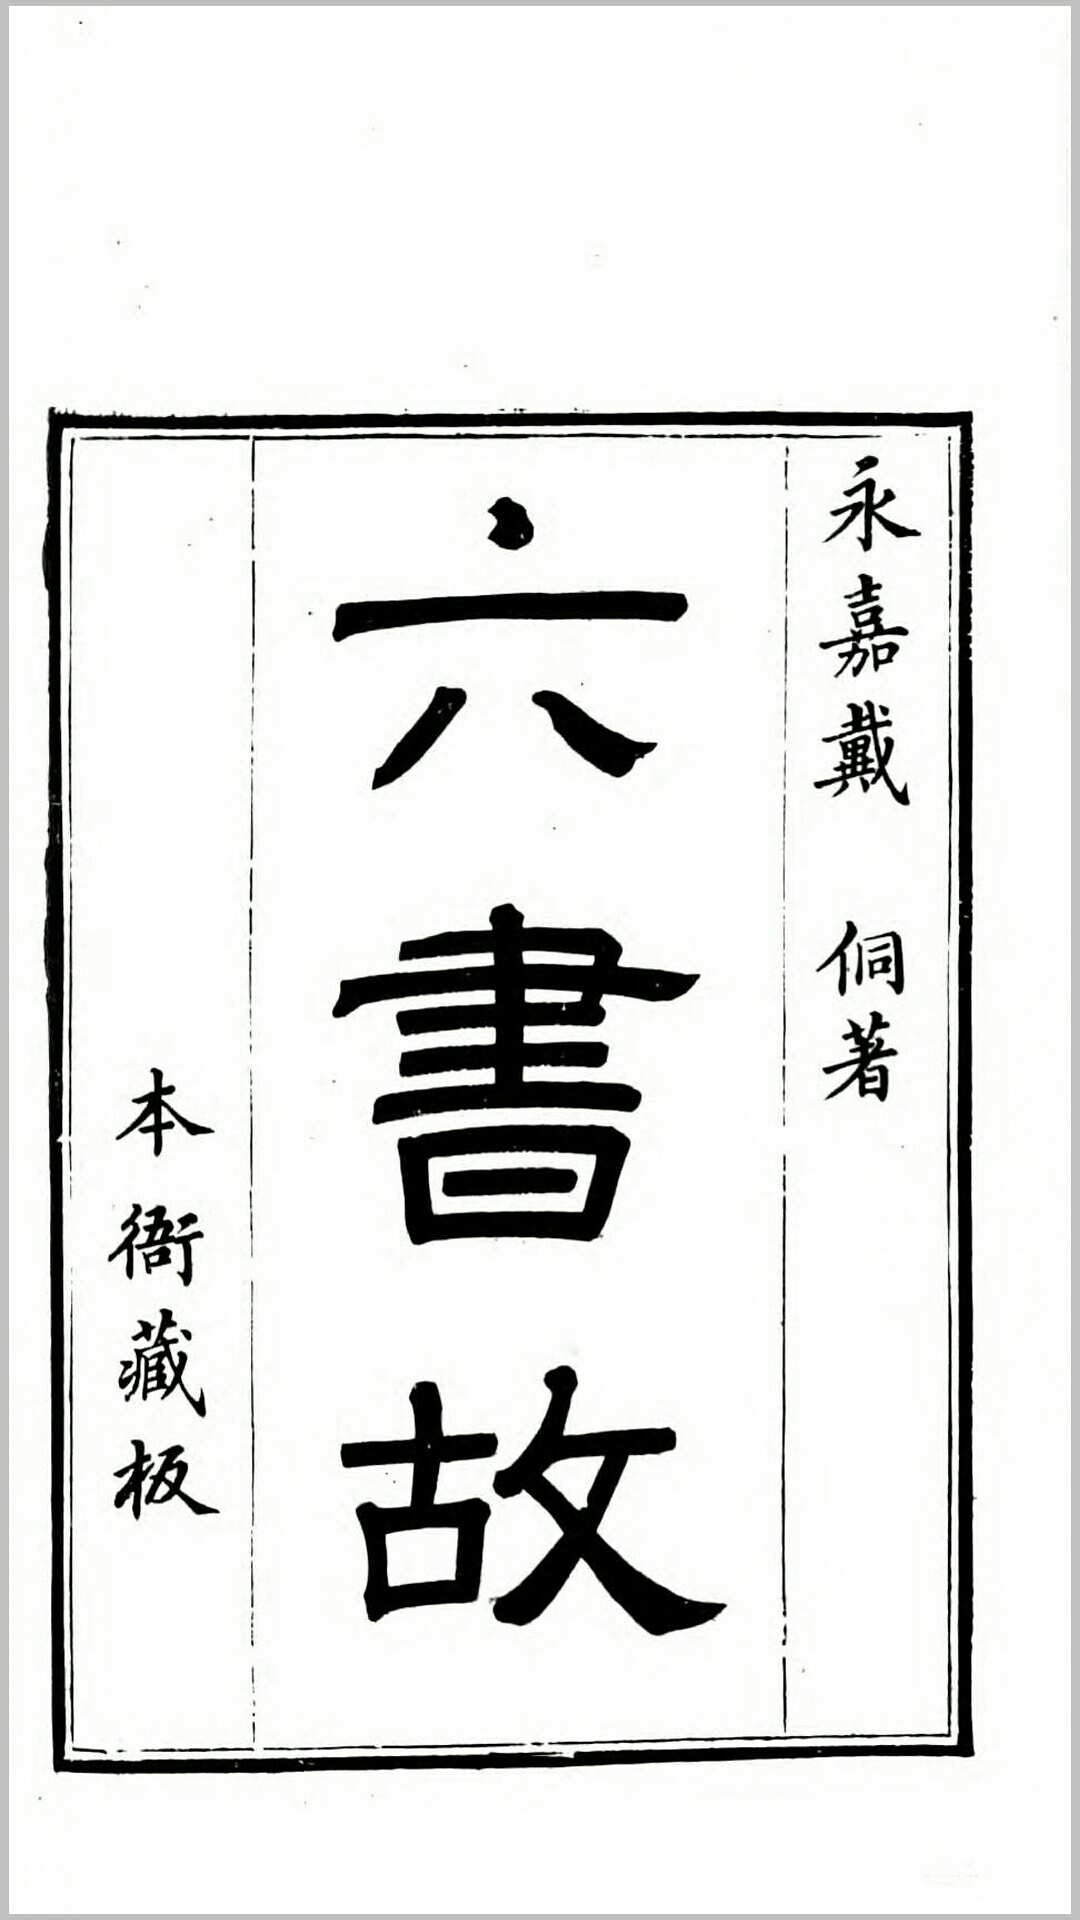 永嘉戴　侗著
六書故
本衙藏板